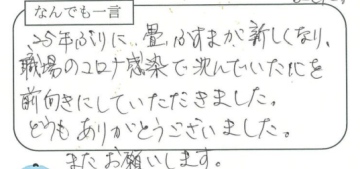 なんでも一言
25年ぶりに、畳、ふすまが新しくなり、
職場のコロナ感染で沈んでいた心を
前向きにしていただきました。
どうもありがとうございました。
またお願いします。